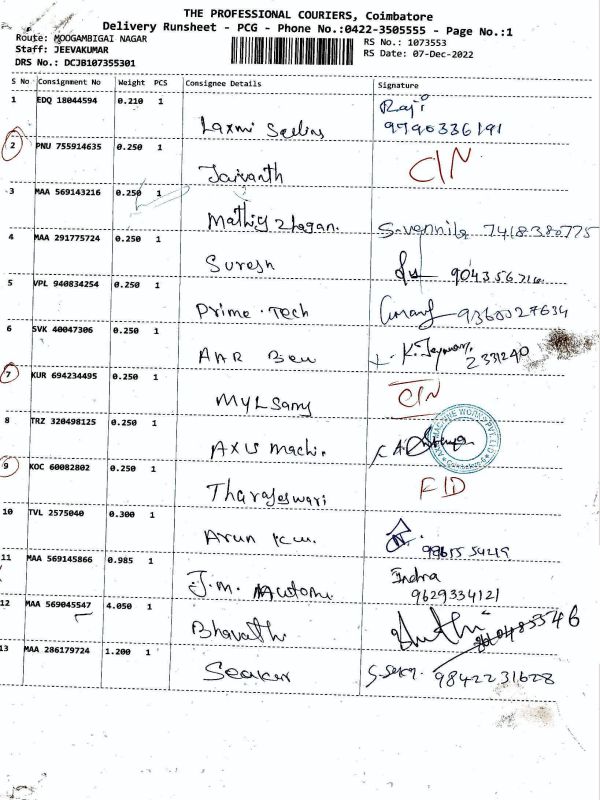 THE PROFESSIONAL COURIERS, Coimbatore
Delivery Runsheet - PCG - Phone No.:0422-3505555 - Page No.:1
Route: MOOGAMBIGAI NAGAR
RS No.: 1073553
Staff: JEEVAKUMAR
RS Date: 07-Dec-2022
DRS No.: DCJB107355301
S No Consignment No Weight PCS Consignee Details Signature
1 EDQ 18044594 0.210 1 Raji
Laxmi 9790336191
2 PNU 755914635 0.250 1 CIN
Jaivanth
3 MAA 569143216 0.250 1
Mathiy zhagan. S.vennila 7418380775
4 MAA 291775724 0.250 1
Suresh 9043556716
5 VPL 940834254 0.250 1
Prime.Tech 9360027634
6 SVK 40047306 0.250 1
2331240
7 KUR 694234495 0.250 1 CIN
MYLSamy
8 TRZ 320498125 0.250 1
Axus machi.
9 KOC 60082802 0.250 1 FID
Tharajeswari
10 TVL 2575040 0.300 1
Arun 9865554219
11 MAA 569145866 0.985 1 Indra
J.m. Automi 9629334121
12 MAA 569045547 4.050 1
Bharathi
13 MAA 286179724 1.200 1
Seakar 9842231628